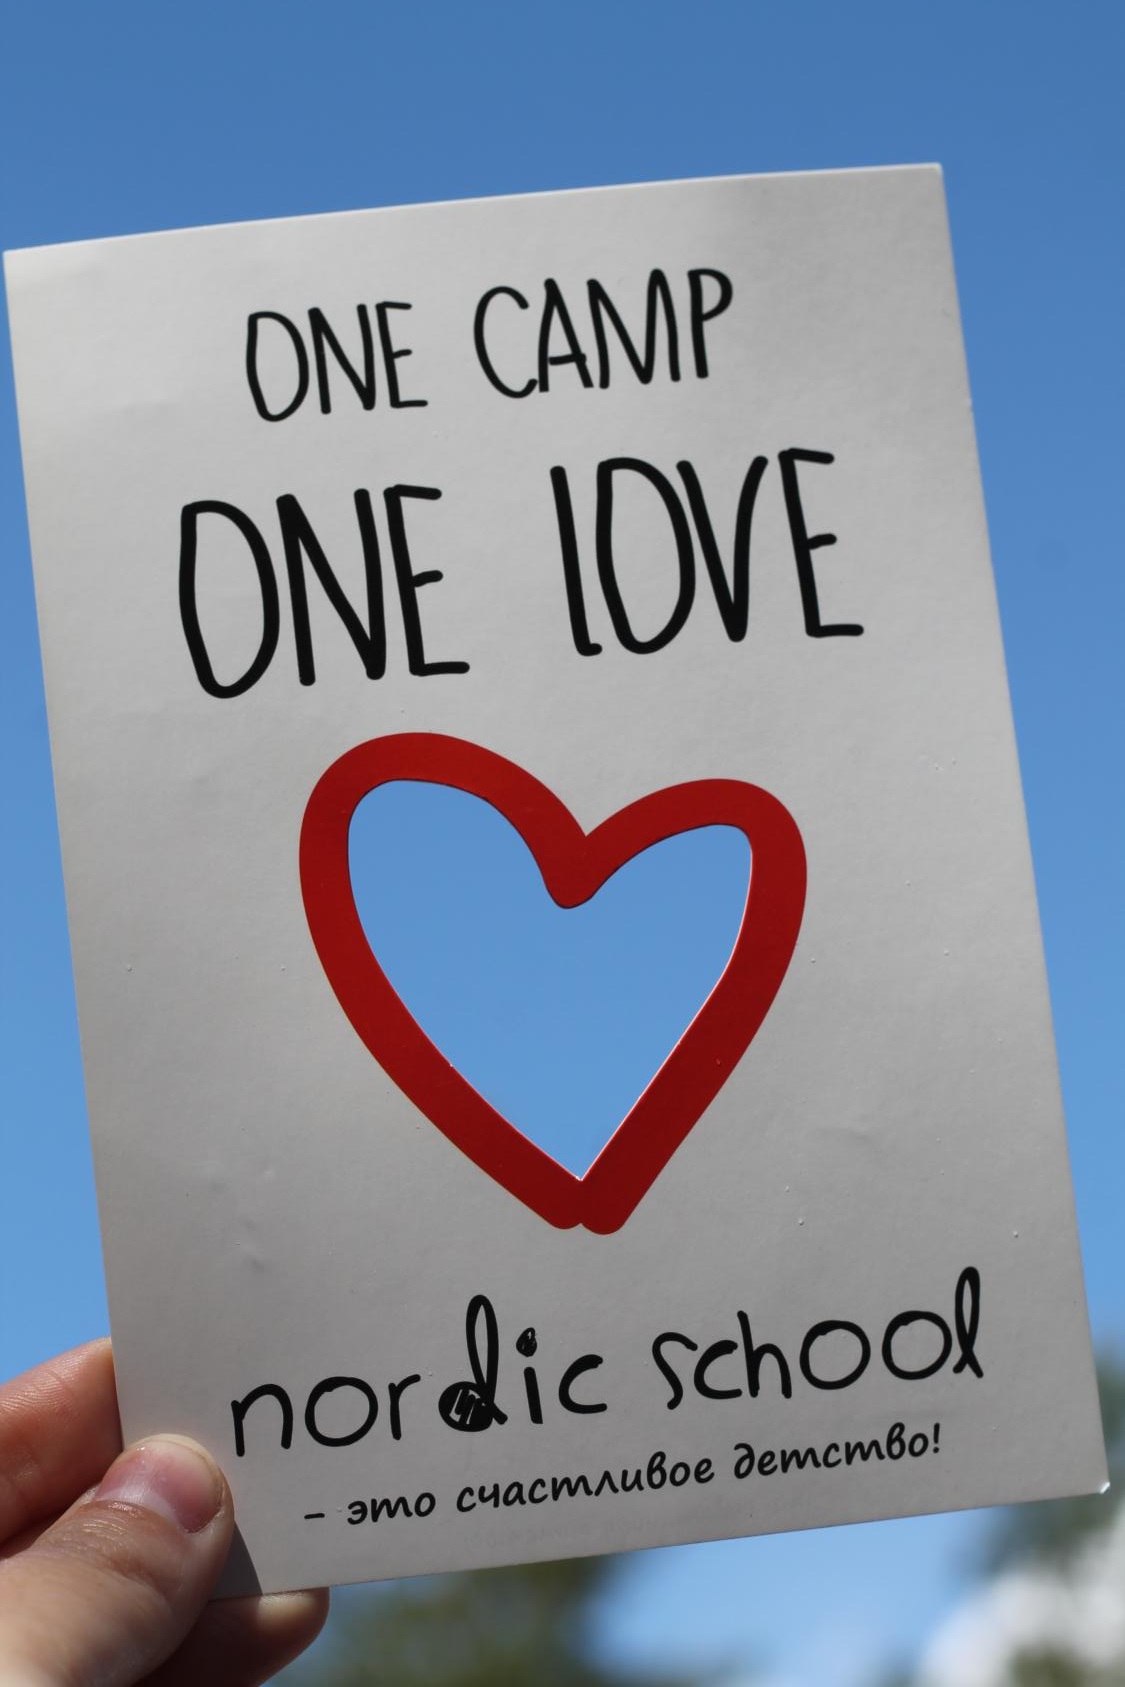 ONE CAMP
ONE lOVE
nordic school
- это счастливое детство!